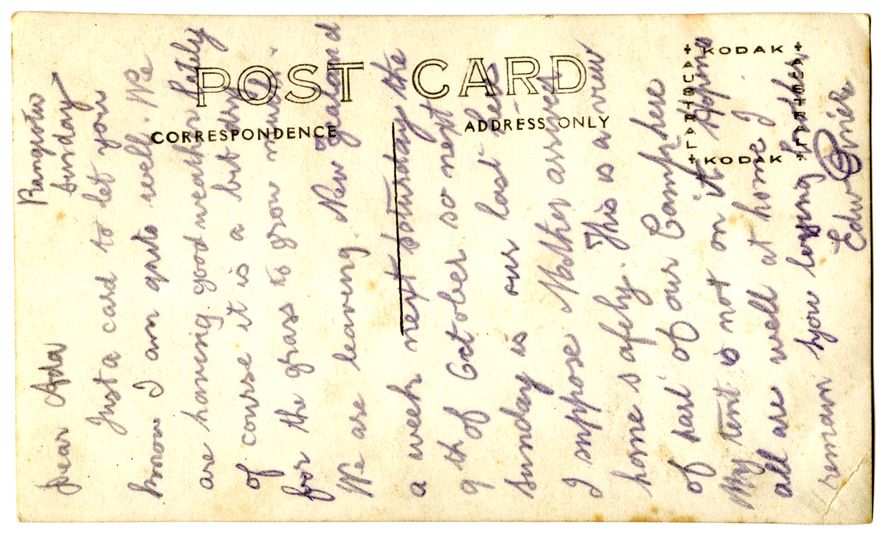 POST CARD
CORRESPONDENCE
ADDRESS ONLY
KODAK
AUSTRALIA
KODAK
AUSTRALIA
Sunday
Dear Ada
Just a card to let you
know I am quite well. We
are having good weather lately
of course it is a bit dry
for the grass to grow much
We are leaving New Zealand
a week next saturday the
9th of October so next
Sunday is our last here
I suppose Mother arrived
home safely. This is a view
of part of our Camp here
My tent is not on it Hoping
all are well at home I
remain your loving brother
Edw